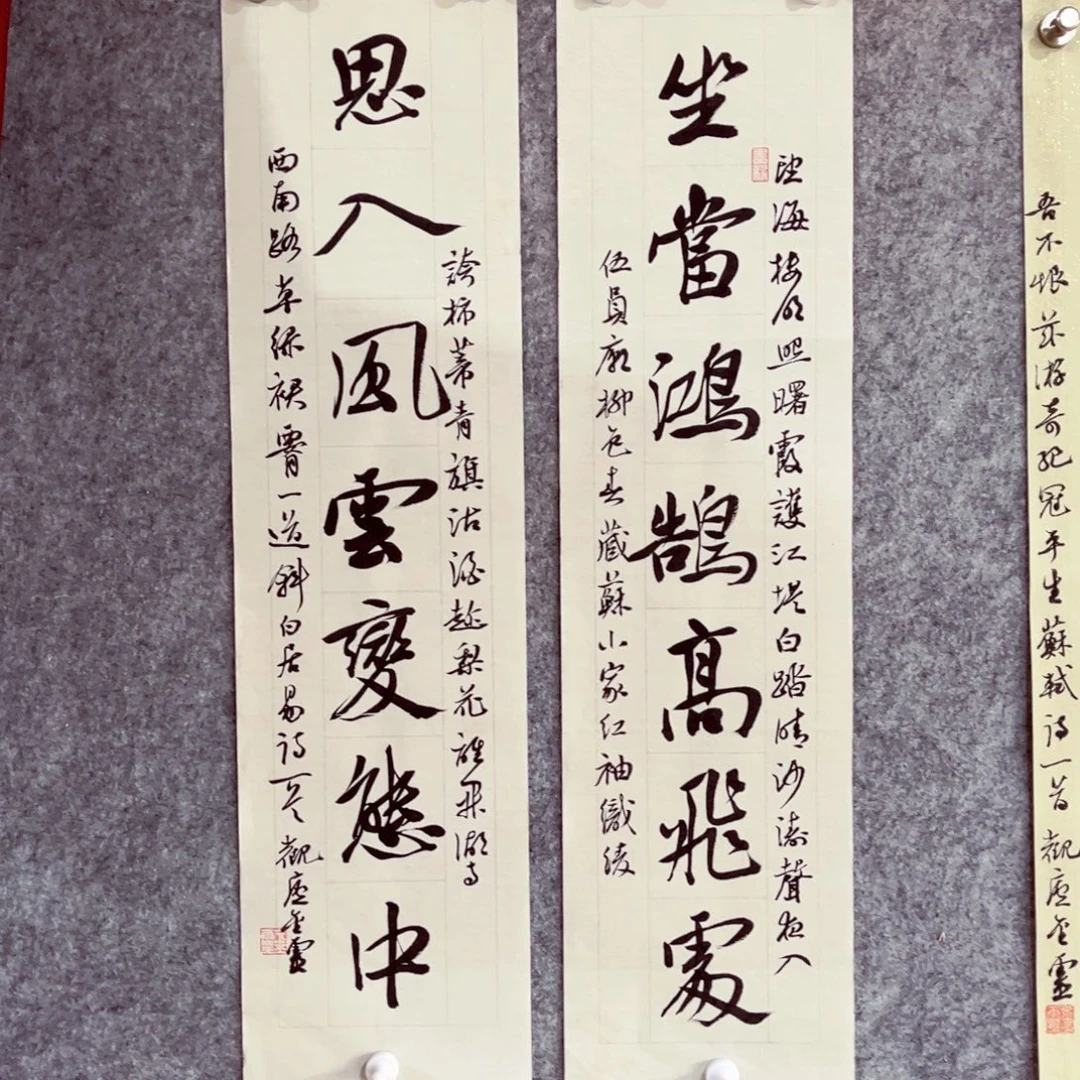 吾不恨茲游奇绝冠平生蘇軾诗一首觀
望海楼明照曙霞護江堤白踏晴沙濤聲夜入
坐當鴻鵠高飛處
伍員廟柳色春藏蘇小家红袖織綾
誇柿蒂青旗沽酒趁梨花誰開湖寺
思入風雲變態中
西南路草绿裙腰一道斜白居易诗一首觀